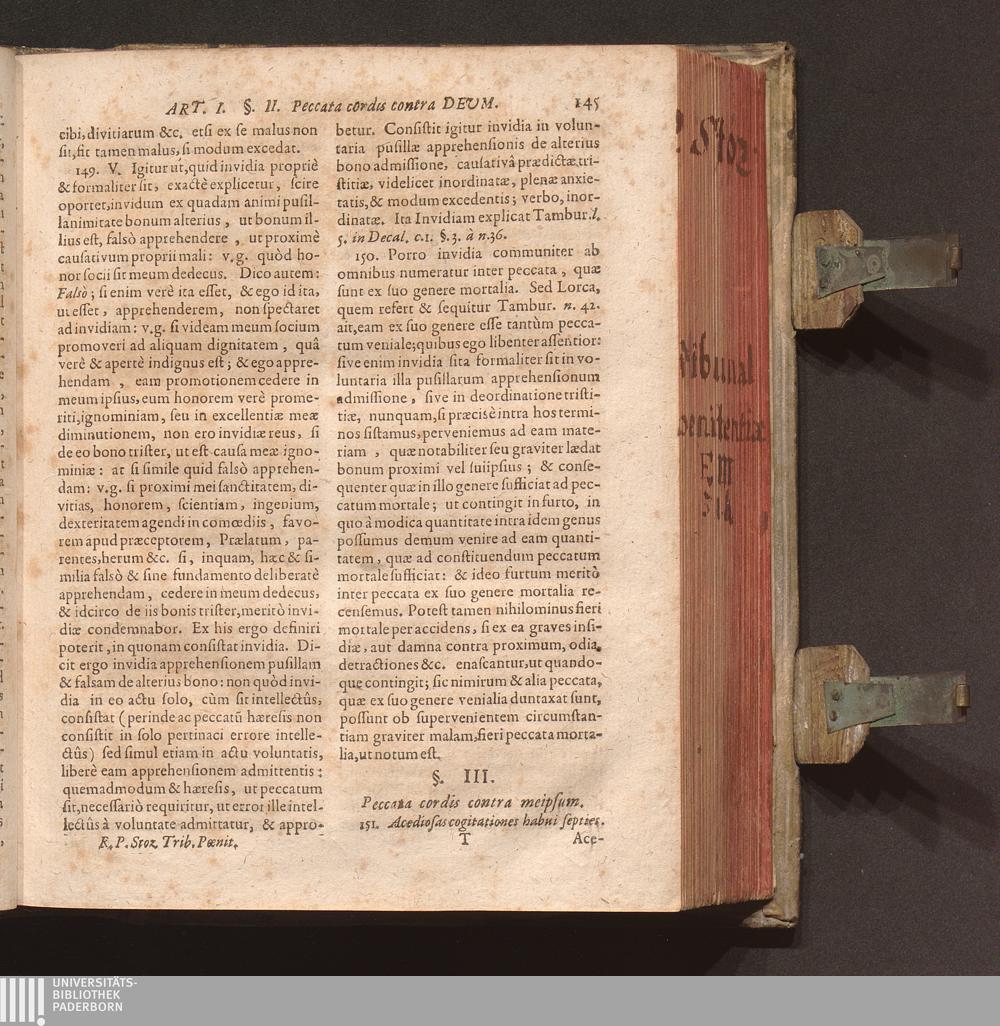 ART. I. §. II. Peccata cordis contra DEUM. 145
cibi, divitiarum &c. etsi ex se malus non
sit, sit tamen malus, si modum excedat.
149. V. Igitur ut, quid invidia propriè
& formaliter sit, exactè explicetur, scire
oportet, invidum ex quadam animi pusil-
lanimitate bonum alterius, ut bonum il-
lius est, falsò apprehendere, ut proximè
causativum proprii mali: v.g. quòd ho-
nor socii sit meum dedecus. Dico autem:
Falsò; si enim verè ita esset, & ego id ita,
ut esset, apprehenderem, non spectaret
ad invidiam: v.g. si videam meum socium
promoveri ad aliquam dignitatem, quâ
verè & apertè indignus est; & ego appre-
hendam, eam promotionem cedere in
meum ipsius, eum honorem verè prome-
riti, ignominiam, seu in excellentiæ meæ
diminutionem, non ero invidiæ reus, si
de eo bono trister, ut est causa meæ igno-
miniæ: at si simile quid falsò apprehen-
dam: v.g. si proximi mei sanctitatem, di-
vitias, honorem, scientiam, ingenium,
dexteritatem agendi in comœdiis, favo-
rem apud præceptorem, Prælatum, pa-
rentes, herum &c. si, inquam, hæc & si-
milia falsò & sine fundamento deliberatè
apprehendam, cedere in meum dedecus,
& idcirco de iis bonis trister, meritò invi-
diæ condemnabor. Ex his ergo definiri
poterit, in quonam consistat invidia. Di-
cit ergo invidia apprehensionem pusillam
& falsam de alterius bono: non quòd invi-
dia in eo actu solo, cùm sit intellectûs,
consistat (perinde ac peccatū hæresis non
consistit in solo pertinaci errore intelle-
ctûs) sed simul etiam in actu voluntatis,
liberè eam apprehensionem admittentis:
quemadmodum & hæresis, ut peccatum
sit, necessariò requiritur, ut error ille intel-
lectûs à voluntate admittatur, & appro-
R. P. Stoz Trib. Pœnit.
betur. Consistit igitur invidia in volun-
taria pusillæ apprehensionis de alterius
bono admissione, causativâ prædictæ tri-
stitiæ, videlicet inordinatæ, plenæ anxie-
tatis, & modum excedentis; verbo, inor-
dinatæ. Ita Invidiam explicat Tambur. l.
5. in Decal. c.1. §.3. à n.36.
150. Porro invidia communiter ab
omnibus numeratur inter peccata, quæ
sunt ex suo genere mortalia. Sed Lorca,
quem refert & sequitur Tambur. n. 42.
ait, eam ex suo genere esse tantùm pecca-
tum veniale; quibus ego libenter assentior:
sive enim invidia sita formaliter sit in vo-
luntaria illa pusillarum apprehensionum
admissione, sive in deordinatione tristi-
tiæ, nunquam, si præcisè intra hos termi-
nos sistamus, perveniemus ad eam mate-
riam, quæ notabiliter seu graviter lædat
bonum proximi vel suiipsius; & conse-
quenter quæ in illo genere sufficiat ad pec-
catum mortale; ut contingit in furto, in
quo à modica quantitate intra idem genus
possumus demum venire ad eam quanti-
tatem, quæ ad constituendum peccatum
mortale sufficiat: & ideo furtum meritò
inter peccata ex suo genere mortalia re-
censemus. Potest tamen nihilominus fieri
mortale per accidens, si ex ea graves insi-
diæ, aut damna contra proximum, odia,
detractiones &c. enascantur, ut quando-
que contingit; sic nimirum & alia peccata,
quæ ex suo genere venialia duntaxat sunt,
possunt ob supervenientem circumstan-
tiam graviter malam, fieri peccata morta-
lia, ut notum est.
§. III.
Peccata cordis contra meipsum.
151. Acediosas cogitationes habui septies.
T Ace-
P. Stoz
Tribunal
Poenitentiæ
UNIVERSITÄTS-
BIBLIOTHEK
PADERBORN